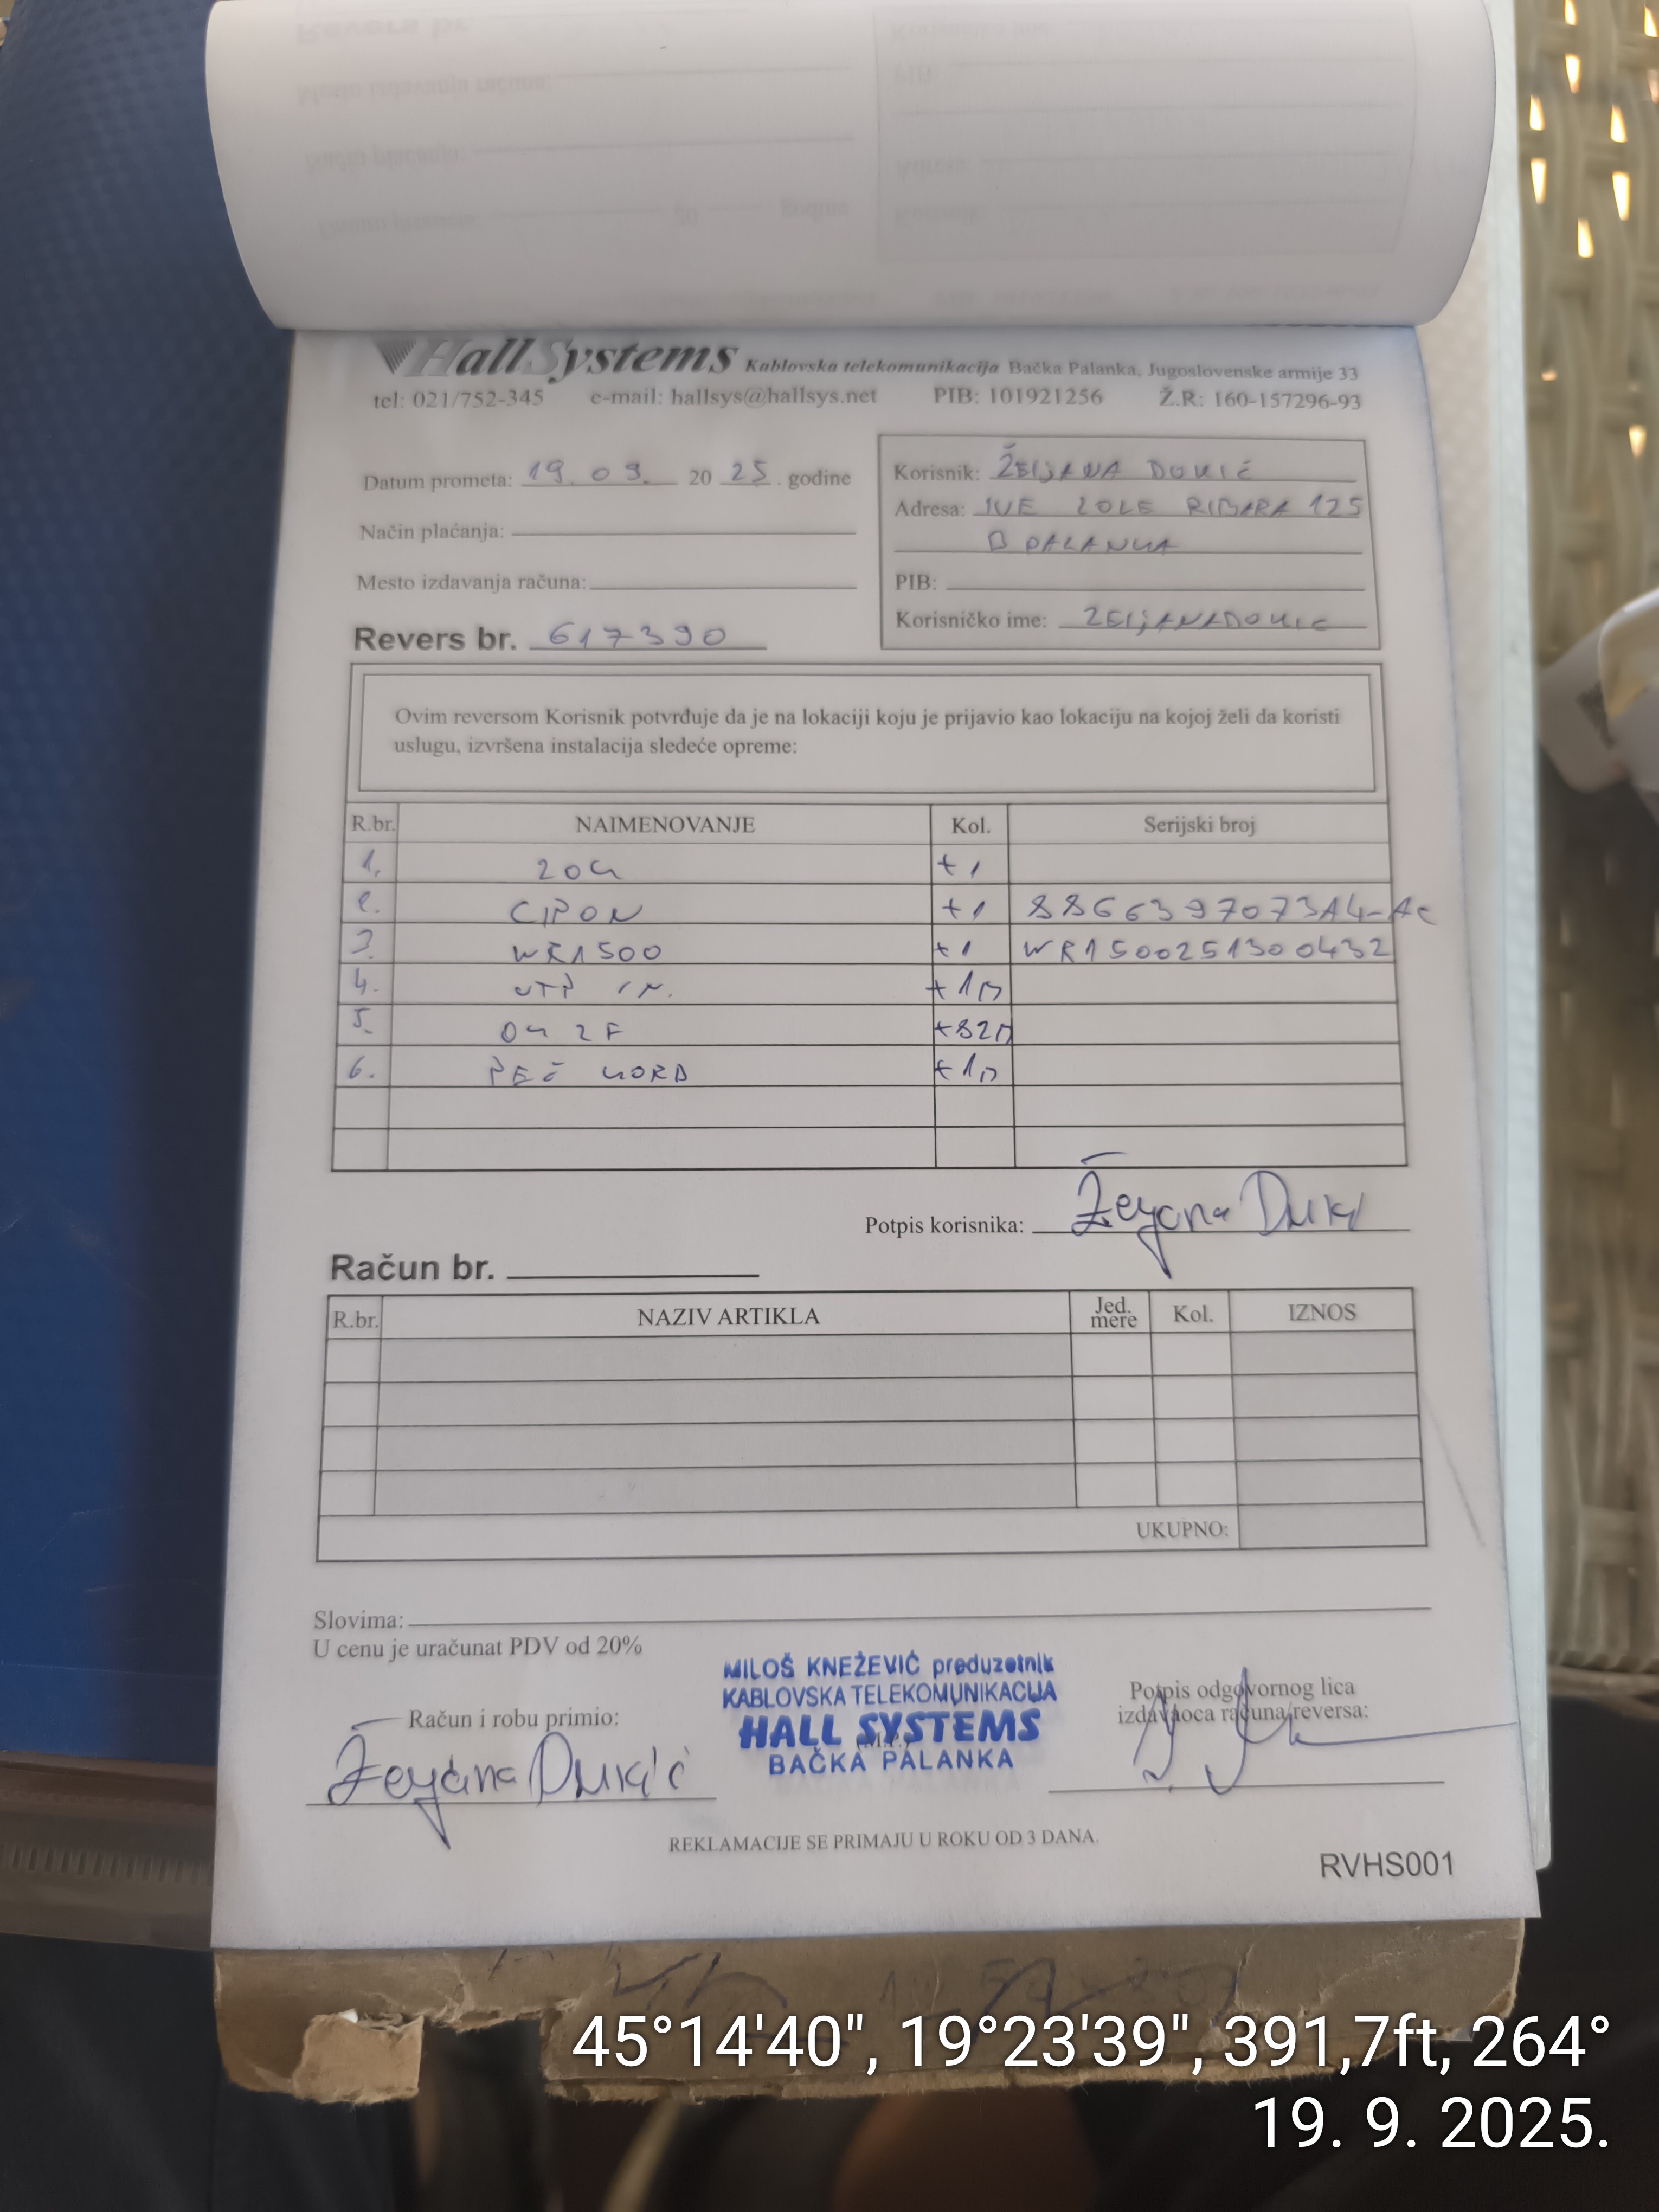 Hall Systems Kablovska telekomunikacija Bačka Palanka, Jugoslovenske armije 33
tel: 021/752-345 e-mail: hallsys@hallsys.net PIB: 101921256 Ž.R: 160-157296-93
Datum prometa: 19. 09. 20 25. godine
Način plaćanja:
Mesto izdavanja računa:
Revers br. 617390
Korisnik: ŽELJANA DUKIĆ
Adresa: IVE LOLE RIBARA 125
B PALANKA
PIB:
Korisničko ime: ZELJANADUKIC
Ovim reversom Korisnik potvrđuje da je na lokaciji koju je prijavio kao lokaciju na kojoj želi da koristi
uslugu, izvršena instalacija sledeće opreme:
R.br. NAIMENOVANJE Kol. Serijski broj
1. ZOK +1
2. CIPON +1
3. WR1500 +1 WR1500251300432
4. UTP 1M. +1m
5. OK 2F +82m
6. PEČ KORD +1m
Potpis korisnika: Željana Dukić
Račun br.
R.br. NAZIV ARTIKLA Jed. mere Kol. IZNOS
UKUPNO:
Slovima:
U cenu je uračunat PDV od 20%
Račun i robu primio:
Željana Dukić
MILOŠ KNEŽEVIĆ preduzetnik
KABLOVSKA TELEKOMUNIKACIJA
HALL SYSTEMS
(M.P.)
BAČKA PALANKA
Potpis odgovornog lica
izdavaoca računa/reversa:
REKLAMACIJE SE PRIMAJU U ROKU OD 3 DANA.
RVHS001
45°14'40", 19°23'39", 391,7ft, 264°
19. 9. 2025.